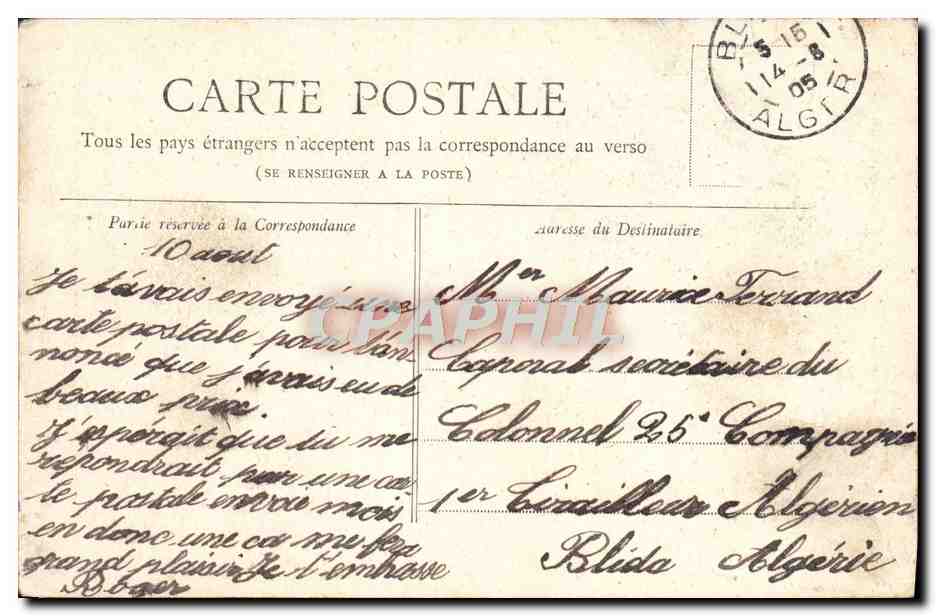 CARTE POSTALE
Tous les pays étrangers n'acceptent pas la correspondance au verso
(SE RENSEIGNER A LA POSTE)
5-15
14-8
05
ALGER
Partie réservée à la Correspondance
10 aout
Je t'avais envoyé une
carte postale pour t'an
noncé que j'avais eu de
beaux prix.
J'espergit que tu me
répondrait par une car
te postale envoie mois
en donc une ca me fera
grand plaisir Je t'embrasse
Roger
Adresse du Destinataire
Mer Maurice Ferrand
Caporal secrétaire du
Colonnel 25e Compagnie
1er Tirailleur Algérien
Blida Algérie
CPAPHIL